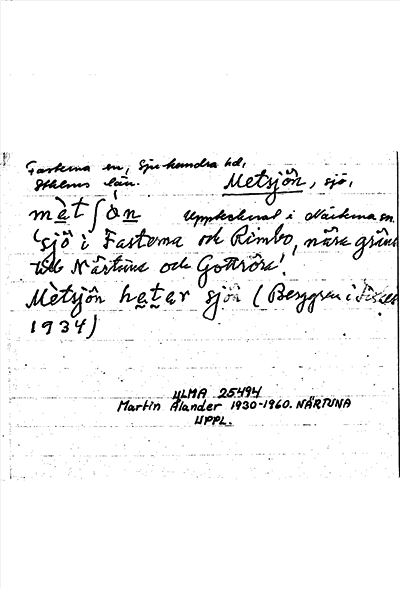 Fasterna sn, Sjuhundra hd,
Sthlms län.
Metsjön, sjö,
mè̱tʃò̱n Upptecknat i Närtuna sn.
'sjö i Fasterna och Rimbo, nära gräns
till Närtuna och Gottröra'.
Mètsjön hetar sjön (Berggren i
1934)
ULMA 25494
Martin Ålander 1930-1960. NÄRTUNA
UPPL.